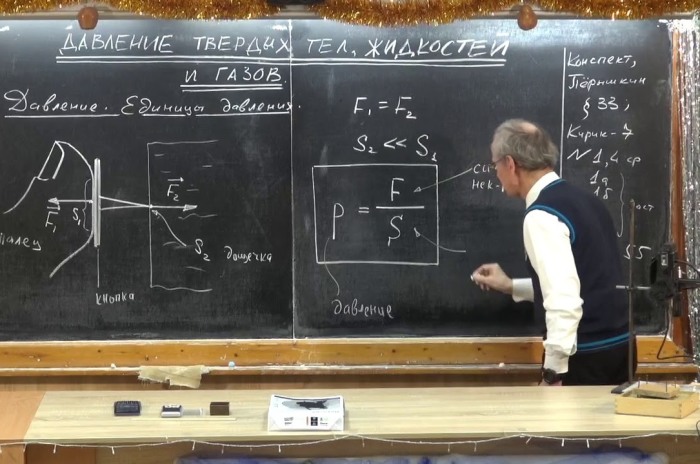 ДАВЛЕНИЕ ТВЕРДЫХ ТЕЛ, ЖИДКОСТЕЙ
И ГАЗОВ.
Давление. Единицы давления.
F₁
S₁
F₂
S₂
дощечка
кнопка
F₁ = F₂
S₂ << S₁
p = F / S
давление
Конспект,
Пёрышкин
§ 33;
Кирик-7
N 1,4 ср
1д
1б